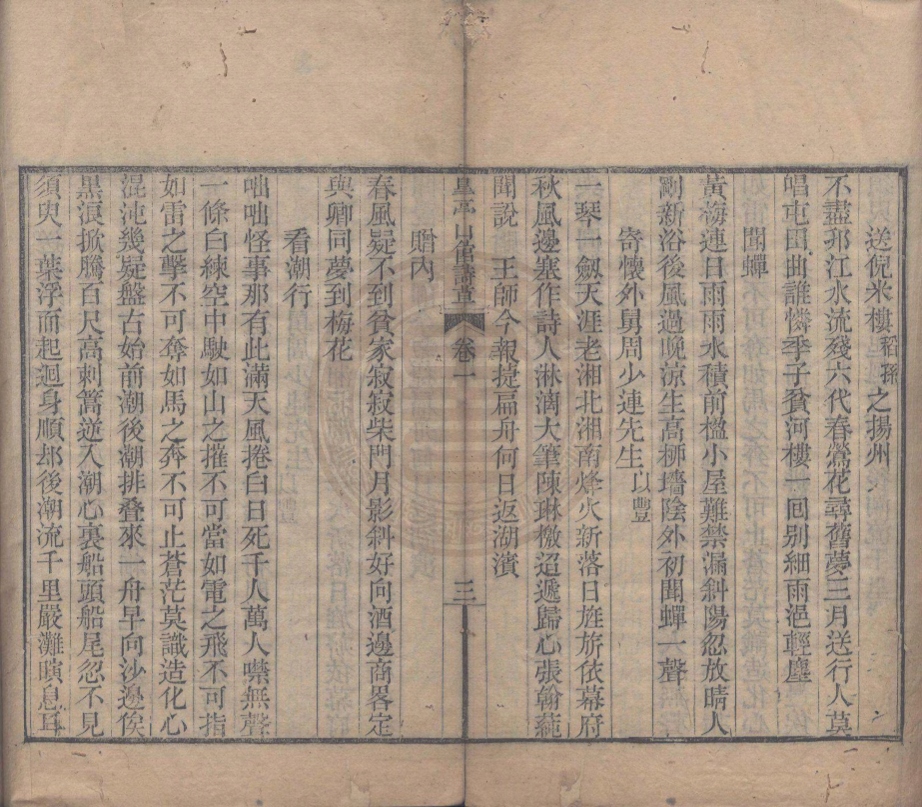 送倪米樓稻孫之揚州
不盡邗江水流殘六代春鶯花尋舊夢三月送行人莫
唱屯田曲誰憐季子貧河樓一回别細雨浥輕塵
聞蟬
黃梅連日雨雨水積前楹小屋難禁漏斜陽忽放晴人
剛新浴後風過晚涼生高柳墻陰外初聞蟬一聲
寄懷外舅周少連先生以豐
一琴一劔天涯老湘北湘南烽火新落日旌旂依幕府
秋風邊塞作詩人淋漓大筆陳琳檄迢遞歸心張翰蒓
聞說 王師今報捷扁舟何日返湖濱
山館詩草 卷一 三
贈內
春風疑不到貧家寂寂柴門月影斜好向酒邊商畧定
與卿同夢到梅花
看潮行
咄咄怪事那有此滿天風捲白日死千人萬人噤無聲
一條白練空中駛如山之摧不可當如電之飛不可指
如雷之擊不可奪如馬之奔不可止蒼茫莫識造化心
混沌幾疑盤古始前潮後潮排叠來一舟早向沙邊俟
黑浪掀騰百尺高刺篙逆入潮心裏船頭船尾忽不見
須臾一葉浮而起迴身順却後潮流千里嚴灘瞚息耳